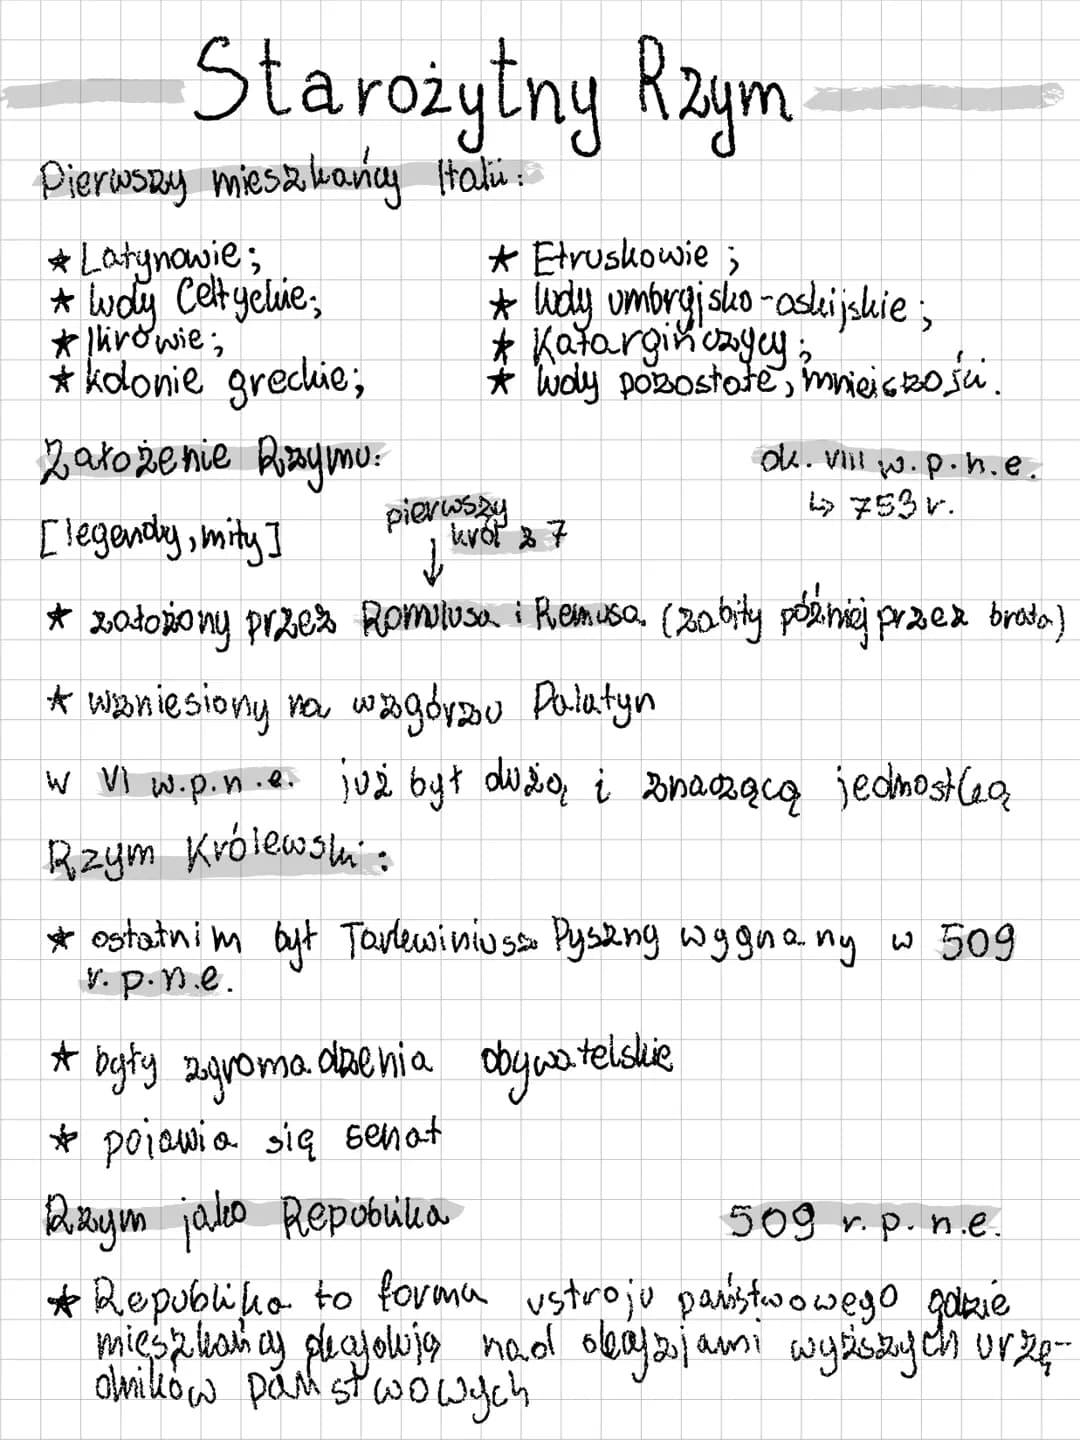 Starożytny Rzym
Pierwszy mieszkańcy Italii:
★ Latynowie;
★ ludy Celtyckie;
★ Ilirowie;
★ kolonie greckie;
★ Etruskowie;
★ ludy umbryjsko-oskijskie;
★ Katargińczycy;
★ ludy pozostałe, mniejszości.
Założenie Rzymu:
ok. VIII w.p.n.e.
↳ 753 r.
[legendy, mity]
pierwszy
król z 7
↓
★ założony przez Romulusa i Remusa (zabity później przez brata)
★ wzniesiony na wzgórzu Palatyn
w VI w.p.n.e. już był dużą i znaczącą jednostką
Rzym Królewski:
★ ostatnim był Tarkwiniusz Pyszny wygnany w 509
r.p.n.e.
★ były zgromadzenia obywatelskie
★ pojawia się senat
Rzym jako Republika
509 r.p.n.e.
★ Republika to forma ustroju państwowego gdzie
mieszkańcy decydują nad decyzjami wyższych urzę-
dników państwowych